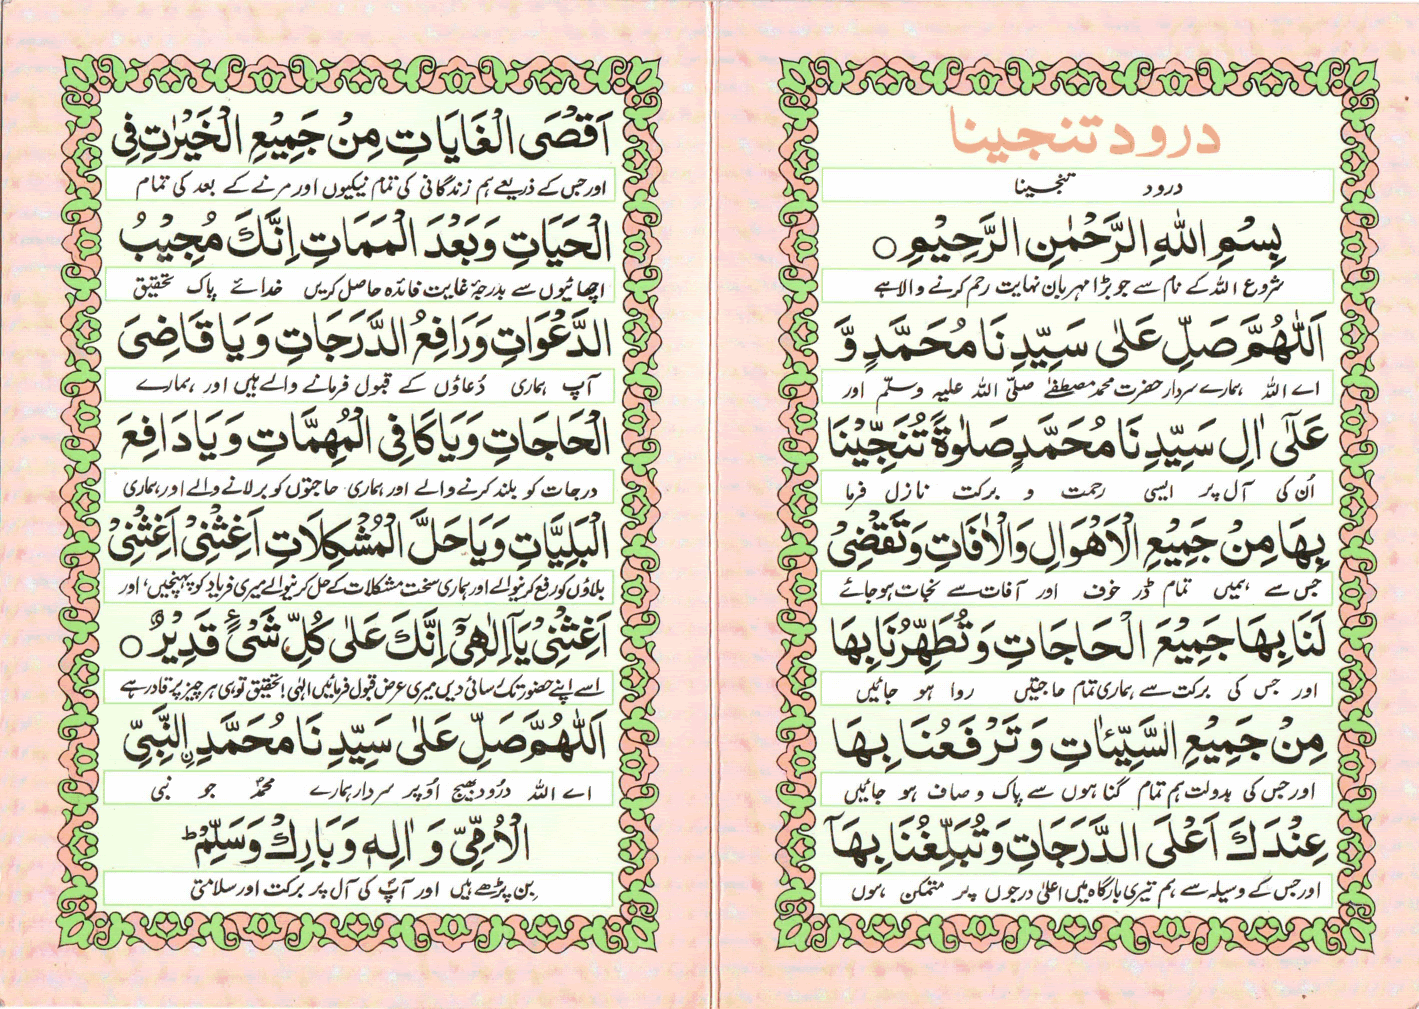 درود تنجینا
درود تنجینا
بِسْمِ اللهِ الرَّحْمٰنِ الرَّحِيْمِ○
شروع اللہ کے نام سے جو بڑا مہربان نہایت رحم کرنے والا ہے
اَللّٰهُمَّ صَلِّ عَلٰى سَيِّدِنَا مُحَمَّدٍ وَّ
اے اللہ ہمارے سردار حضرت محمد مصطفےٰ صلی اللہ علیہ وسلم اور
عَلٰٓى اٰلِ سَيِّدِنَا مُحَمَّدٍ صَلٰوةً تُنَجِّيْنَا
اُن کی آل پر ایسی رحمت و برکت نازل فرما
بِهَا مِنْ جَمِيْعِ الْاَهْوَالِ وَالْاٰفَاتِ وَتَقْضِىْ
جس سے ہمیں تمام ڈر خوف اور آفات سے نجات ہو جائے
لَنَا بِهَا جَمِيْعَ الْحَاجَاتِ وَتُطَهِّرُنَا بِهَا
اور جس کی برکت سے ہماری تمام حاجتیں روا ہو جائیں
مِنْ جَمِيْعِ السَّيِّئَاتِ وَتَرْفَعُنَا بِهَا
اور جس کی بدولت ہم تمام گناہوں سے پاک و صاف ہو جائیں
عِنْدَكَ اَعْلَى الدَّرَجَاتِ وَتُبَلِّغُنَا بِهَآ
اور جس کے وسیلہ سے ہم تیری بارگاہ میں اعلیٰ درجوں پر متمکن ہوں
اَقْصَى الْغَايَاتِ مِنْ جَمِيْعِ الْخَيْرٰتِ فِى
اور جس کے ذریعے ہم زندگانی کی تمام نیکیوں اور مرنے کے بعد کی تمام
الْحَيَاتِ وَبَعْدَ الْمَمَاتِ اِنَّكَ مُجِيْبُ
اچھائیوں سے بدرجۂ غایت فائدہ حاصل کریں خدائے پاک تحقیق
الدَّعْوَاتِ وَرَافِعُ الدَّرَجَاتِ وَيَا قَاضِىَ
آپ ہماری دُعاؤں کے قبول فرمانے والے ہیں اور ہمارے
الْحَاجَاتِ وَيَا كَافِى الْمُهِمَّاتِ وَيَا دَافِعَ
درجات کو بلند کرنے والے اور ہماری حاجتوں کو بر لانے والے اور ہماری
الْبَلِيَّاتِ وَيَا حَلَّ الْمُشْكِلَاتِ اَغِثْنِىْ اَغِثْنِىْ
بلاؤں کو رفع کرنیوالے اور ہماری سخت مشکلات کے حل کرنیوالے میری فریاد کو پہنچیں، اور
اَغِثْنِىْ يَآ اِلٰهِىْٓ اِنَّكَ عَلٰى كُلِّ شَىْءٍ قَدِيْرٌ○
اسے اپنے حضور تک رسائی دیں میری عرض قبول فرمائیں الٰہی تحقیق تو ہی ہر چیز پر قادر ہے
اَللّٰهُمَّ صَلِّ عَلٰى سَيِّدِنَا مُحَمَّدِ نِ النَّبِىِّ
اے اللہ درُود بھیج اُوپر سردار ہمارے محمدؐ جو نبی
الْاُمِّىِّ وَ اٰلِهٖ وَبَارِكْ وَسَلِّمْ ط
بِن پڑھے ہیں اور آپؐ کی آل پر برکت اور سلامتی